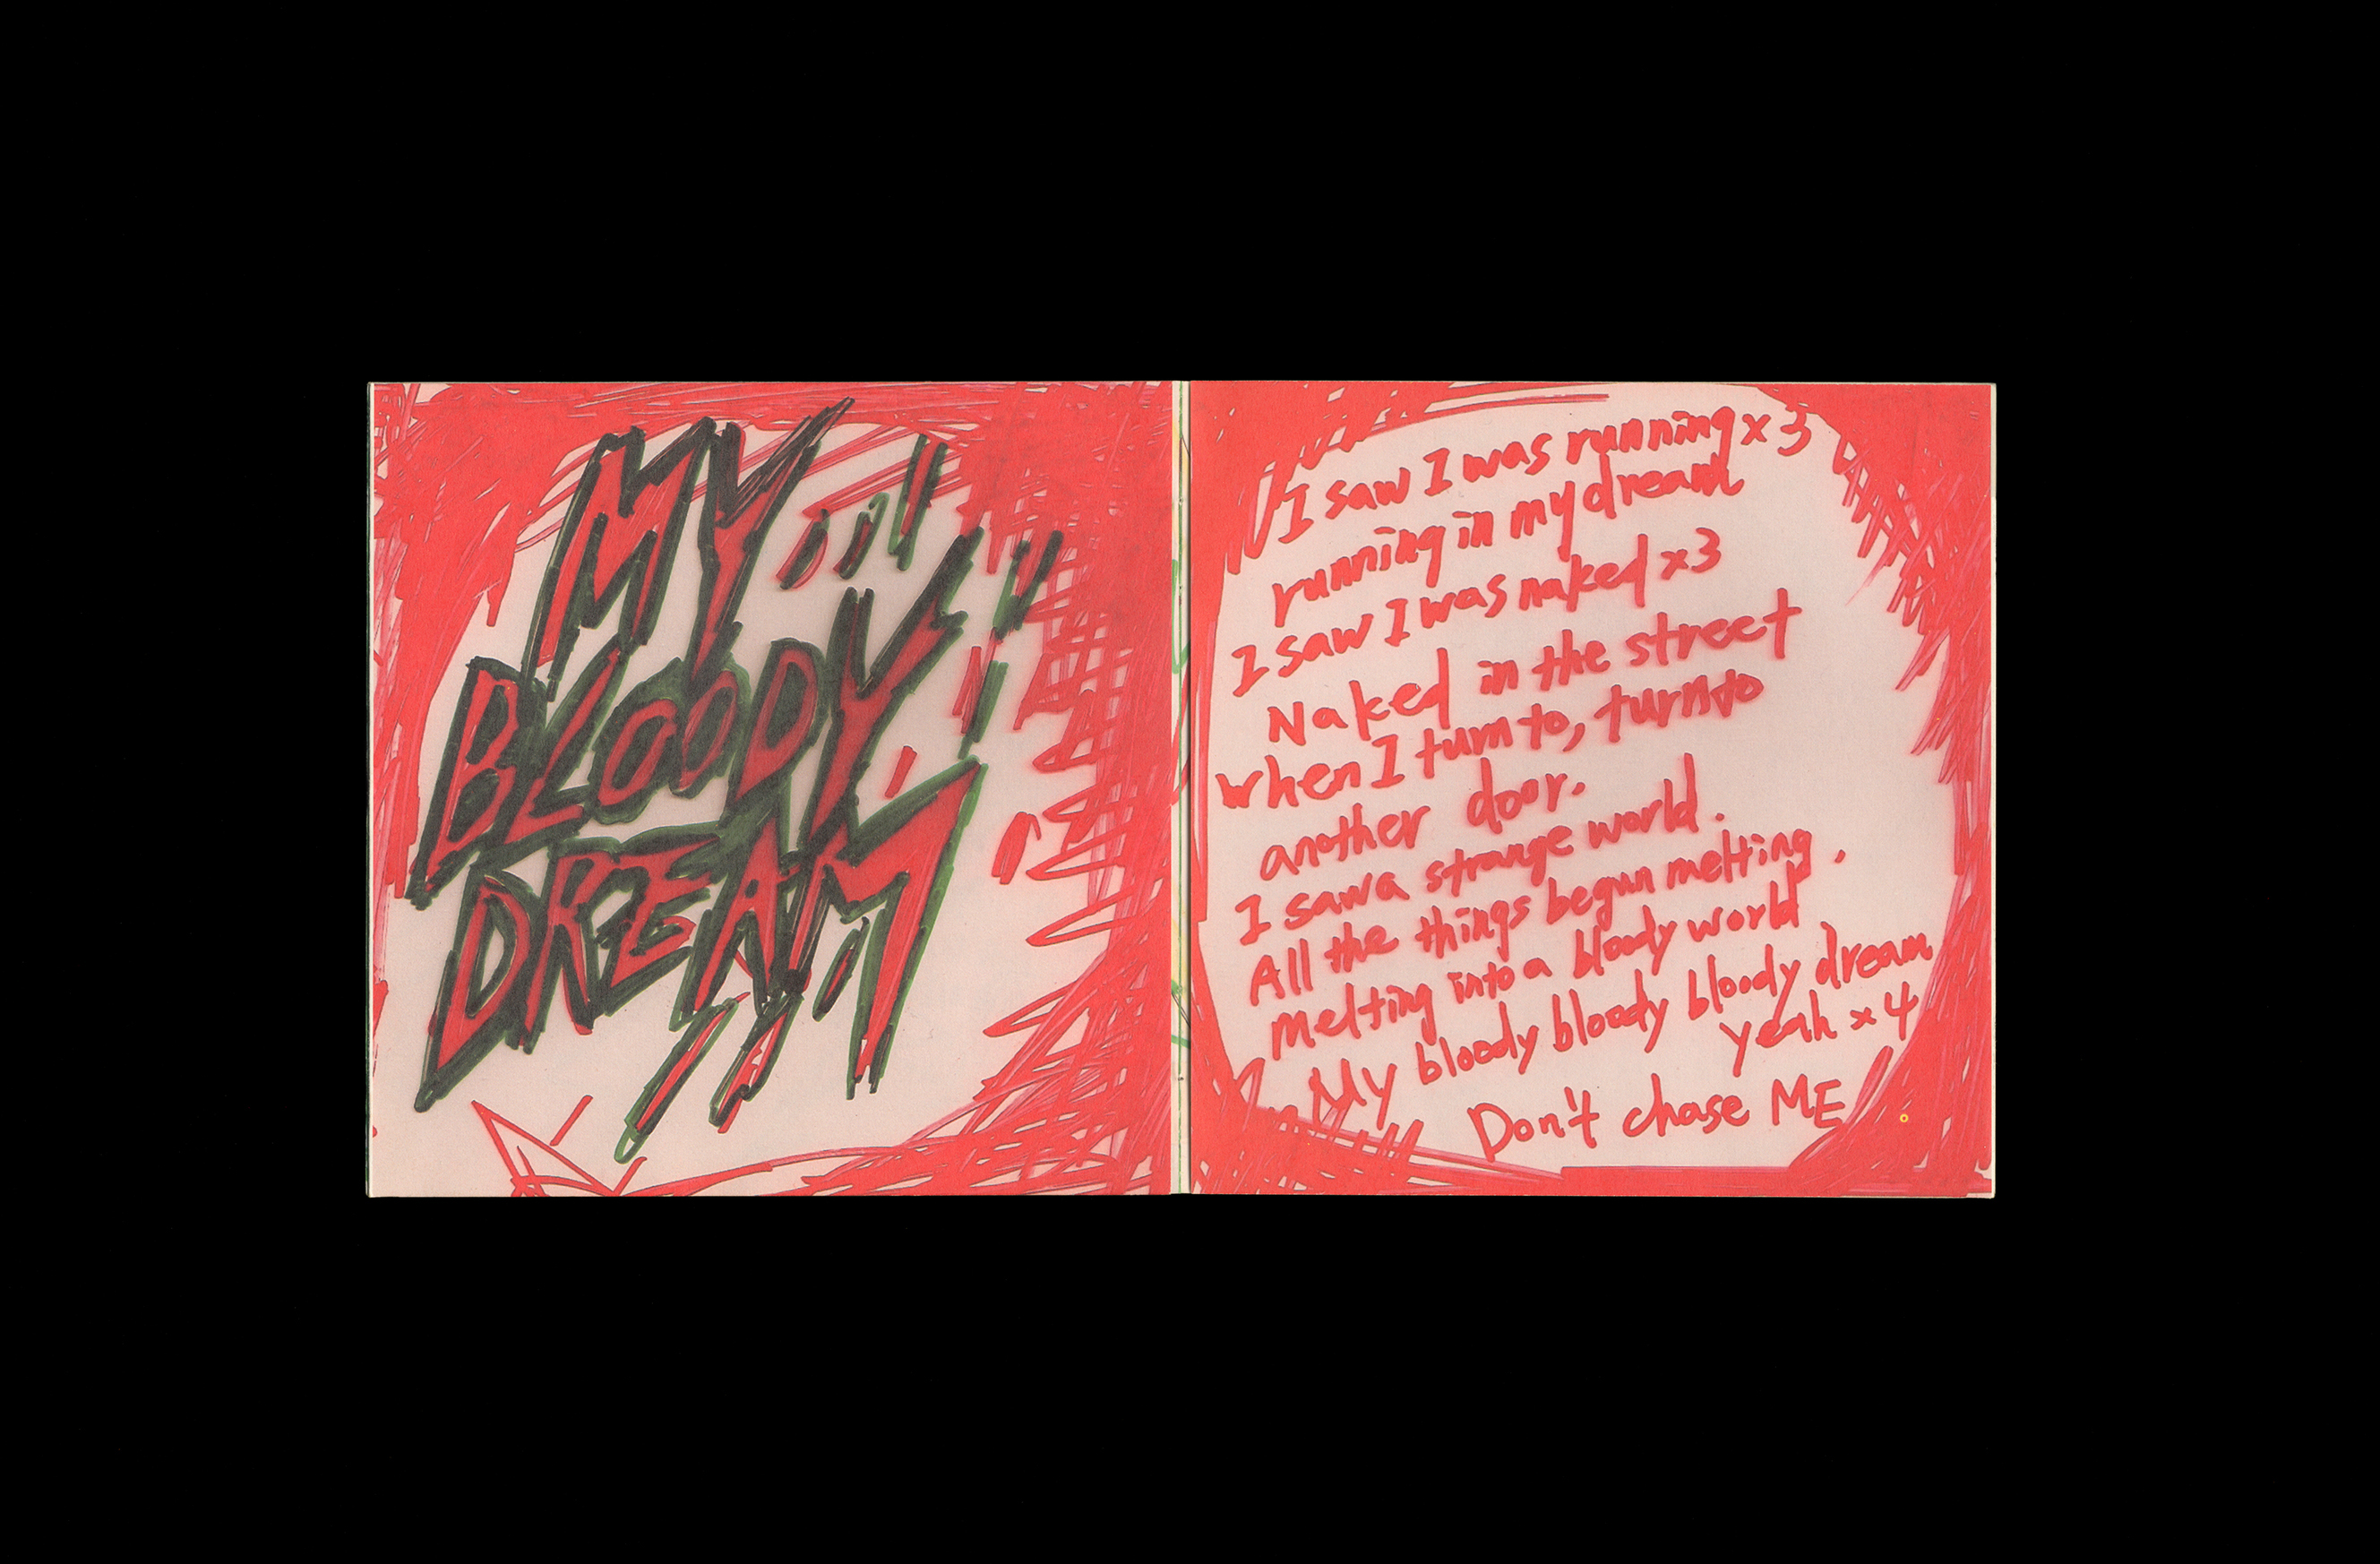 MY
BLOODY
DREAM
I saw I was running x3
running in my dream
I saw I was naked x3
Naked in the street
when I turn to, turn to
another door.
I saw a strange world.
All the things begun melting,
melting into a bloody world
My bloody bloody bloody dream
yeah x4
Don't chase ME